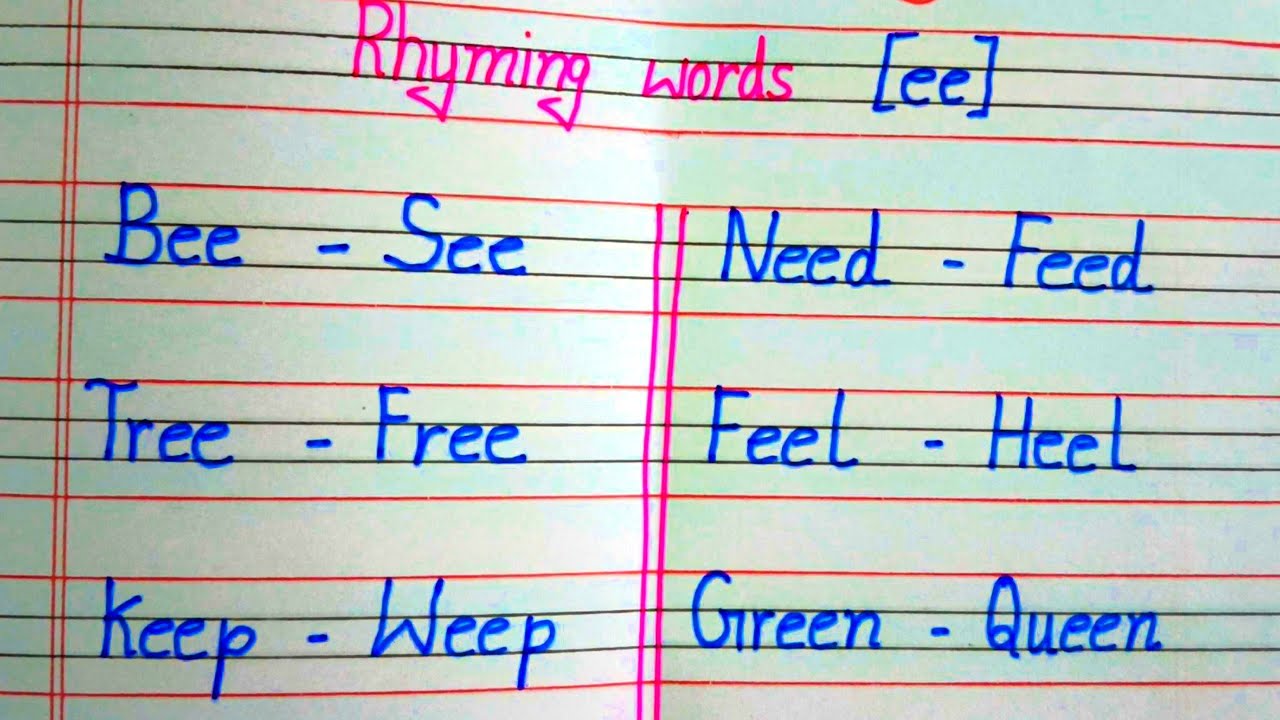 Rhyming words [ee]
Bee - See Need - Feed
Tree - Free Feel - Heel
Keep - Weep Green - Queen